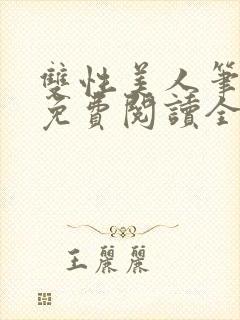 雙性美人筆
免費閱讀全
王麗麗